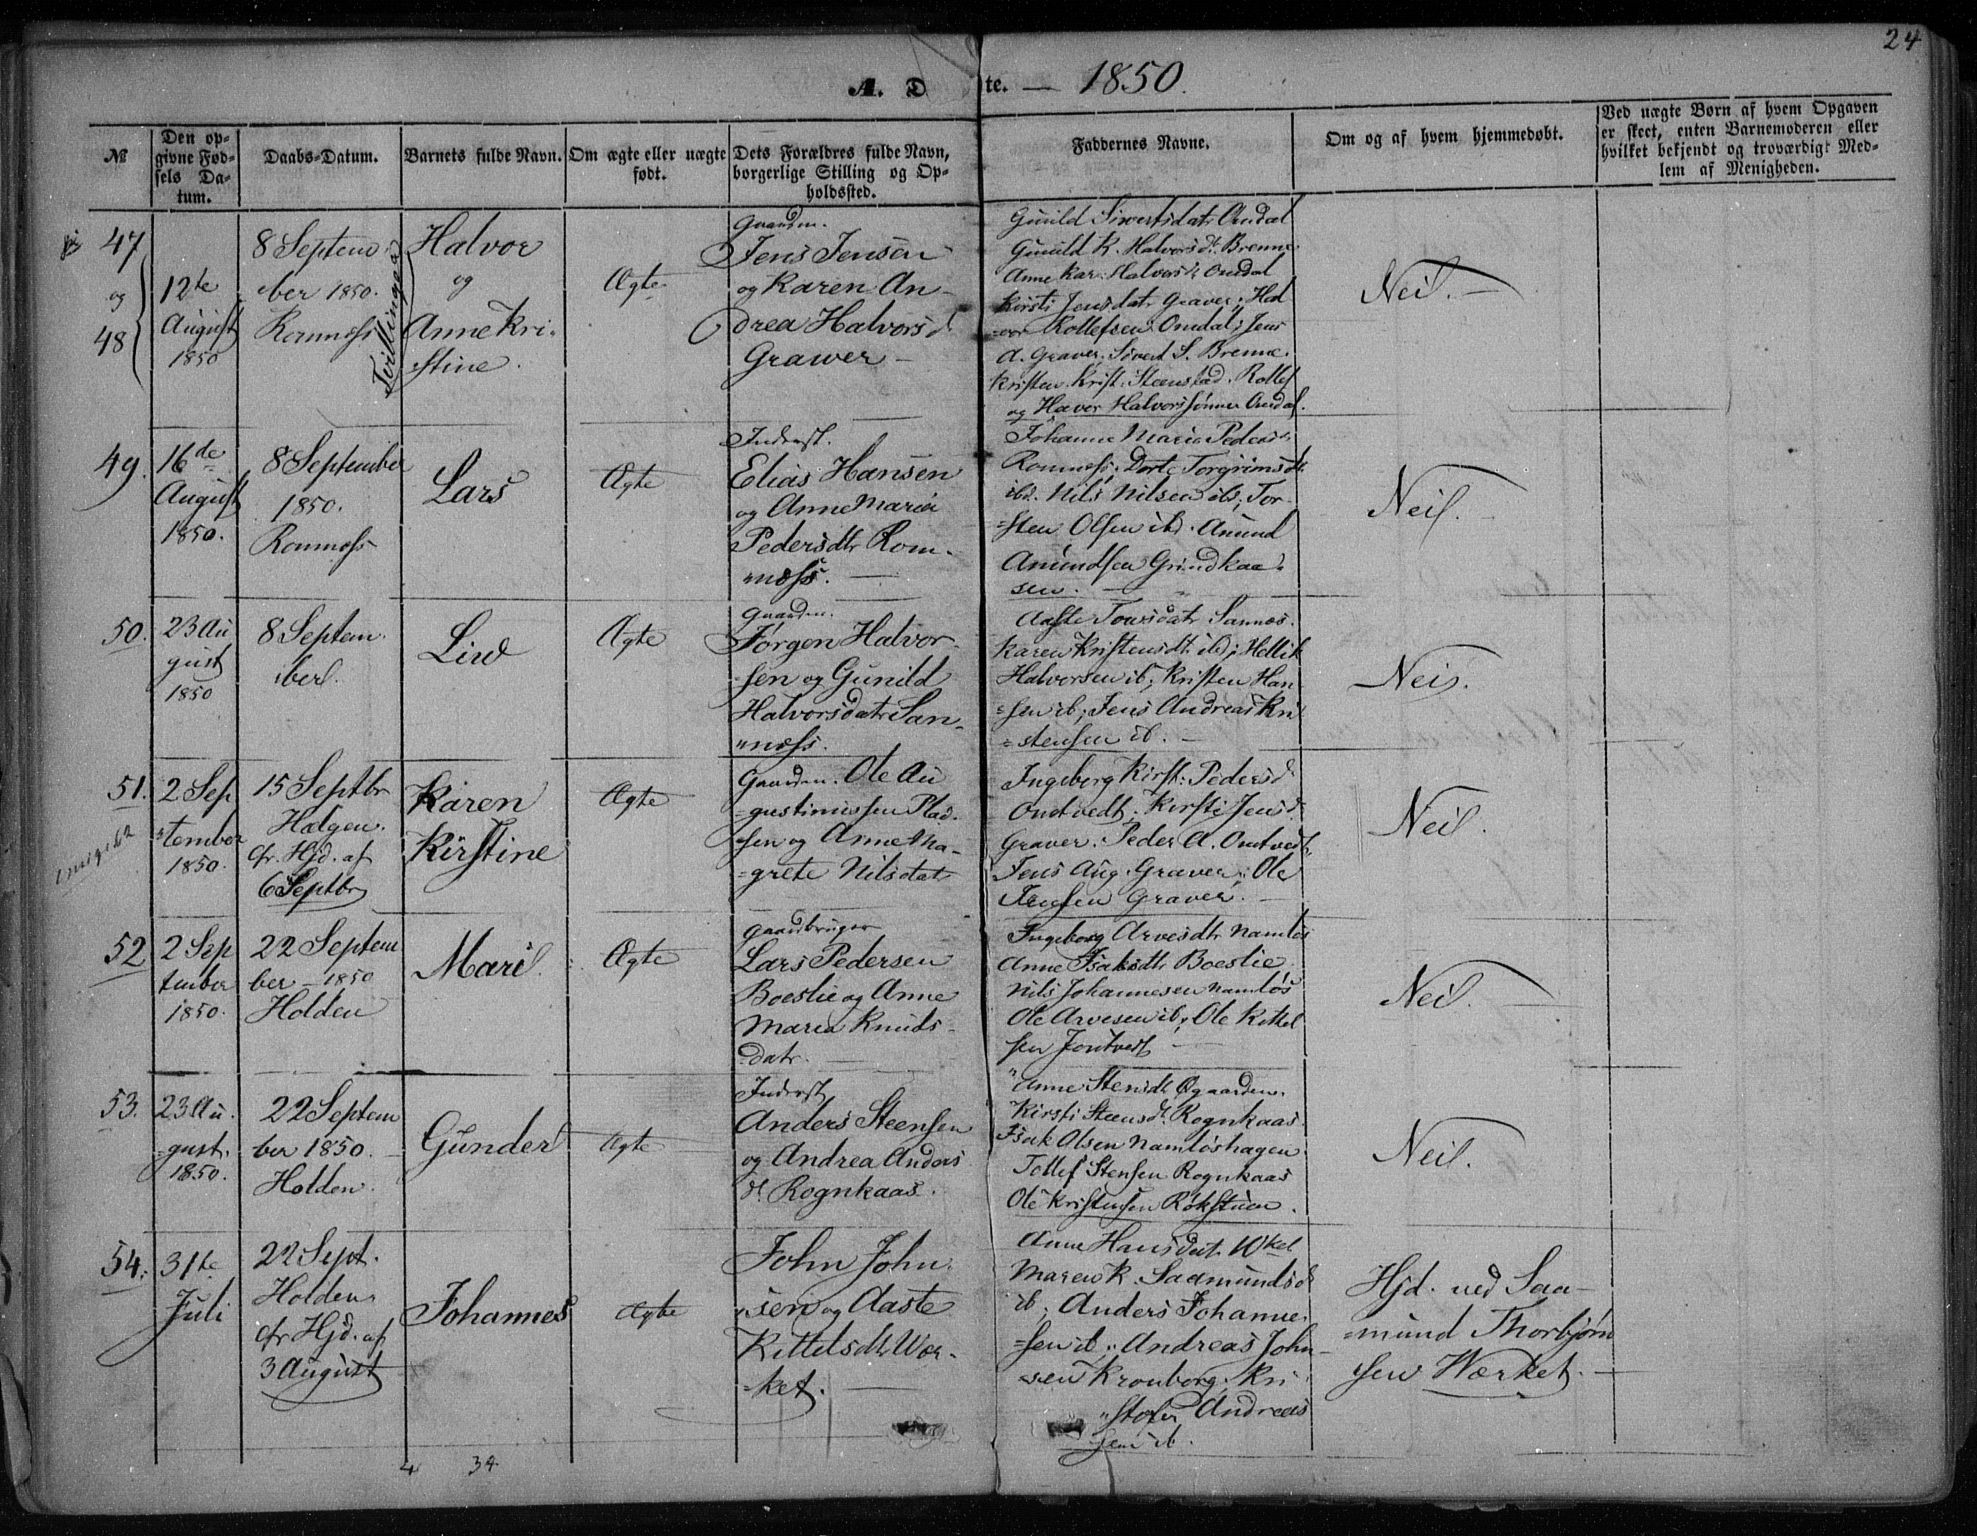 24
A. D te. — 1850.
№
Den op-
givne Fød-
sels Da-
tum.
Daabs-Datum.
Barnets fulde Navn.
Om ægte eller uægte
født.
Dets Forældres fulde Navn,
borgerlige Stilling og Op-
holdssted.
Faddernes Navne.
Om og af hvem hjemmedøbt.
Ved uægte Børn af hvem Opgaven
er skeet, enten Barnemoderen eller
hvilket bekjendt og troværdigt Med-
lem af Menigheden.
47
og
48
12te
August
1850
8 Septem
ber 1850.
Romnæss
Tvillinger
Halvor
og
Anne Kri-
stine.
Ægte
Gaardm.
Jens Jensen
og Karen An-
drea Halvorsd.
Grawer –
Gunild Siversdatr Omdal
Gunild K. Halvorsdt. Brenne
Anne Kar. Halvorsdt Omdal
Kirsti Jensdatr Graver; Hal
=vor Rollefsen Omdal; Jens
A. Graver; Sivert S. Brenne.
Kristen Krist. Steenstad. Rollef
og Haver Halvorssønner Omdal.
Neil. –
49.
16de
August
1850.
8 September
1850.
Romnæss
Lars
Ægte
Inderst.
Elias Hansen
og Anne Maria
Pedersdtr Rom-
næss. —
Johanne Maria Pedersdt.
Romnæss; Dorte Torgrimsdt.
ibd. Nils Nilsen ib; Tor-
=sten Olsen ibd. Amund
Amundsen Grindkaa-
sen. —
Neil. –
50.
23 Au
gust
1850
8 Septem
iberl.
Liw
Ægte
Gaardm.
Jørgen Halvor-
sen og Gunild
Halvorsdatr San-
næss.
Aaste Toursdatr Sannæs.
Karen Kristensdt. ibd; Hellik
Halvorsen ib; Kristen Han-
=sen ib; Jens Andreas Kri
=stensen ib. –
Neil.
51.
2 Sep
=tember
1850.
15 Septbr
Hælgen.
cfr. Hjd. af
6 Septbr
Karen
Kirstine
Ægte
Gaardm. Ole Au
=gustinussen Plad-
sen og Anne Ma-
=grete Nilsdatr
Ingeborg Kirst. Pedersd.
Omtvedt; Kirsti Jensd.
Graver. Peder A. Omtvedt,
Jens Aug. Graver; Ole
Jensen Graver. –
Neil.
52
2 Sep
tember
1850.
22 Septem
ber – 1850
Holden
Mari
Ægte
Gaardbruger
Lars Pedersen
Boeslie og Anne
Maria Knuds-
datr. —
Ingeborg Arvesdtr Namløs
Anne Isaksdtr Boeslie
Nils Johannesen Namløs
Ole Arvesen ib; Ole Kittel
sen Jontvedt
Neil.
53.
23 Au.
=gust.
1850.
22 Septem
ber 1850.
Holden.
Gunder
Ægte
Inderst
Anders Steensen
og Andrea Anders
dt. Rognkaas.
Anne Stensdt. Øgaarden.
Kirsti Steensdt. Rognkaas
Isak Olsen Namløshagen
Tollef Stensen Rognkaas
Ole Kristensen Røkstuen.
Neil.
54.
31te
Juli
22 Sept.
Holden
cfr Hjd. af
3 August
Johannes
Ægte
John John-
sen og Aaste
Kittelsdtr Wær-
ket. —
Anne Hansdatr
Maren K. Saamundsdt
ib; Anders Johanne-
=sen ib; Andreas John-
sen Kronborg; Kri-
stofer Andreas
sen ib.
Hjd. ved Saa-
=mund Thorbjørn
sen Wærket.
4
34